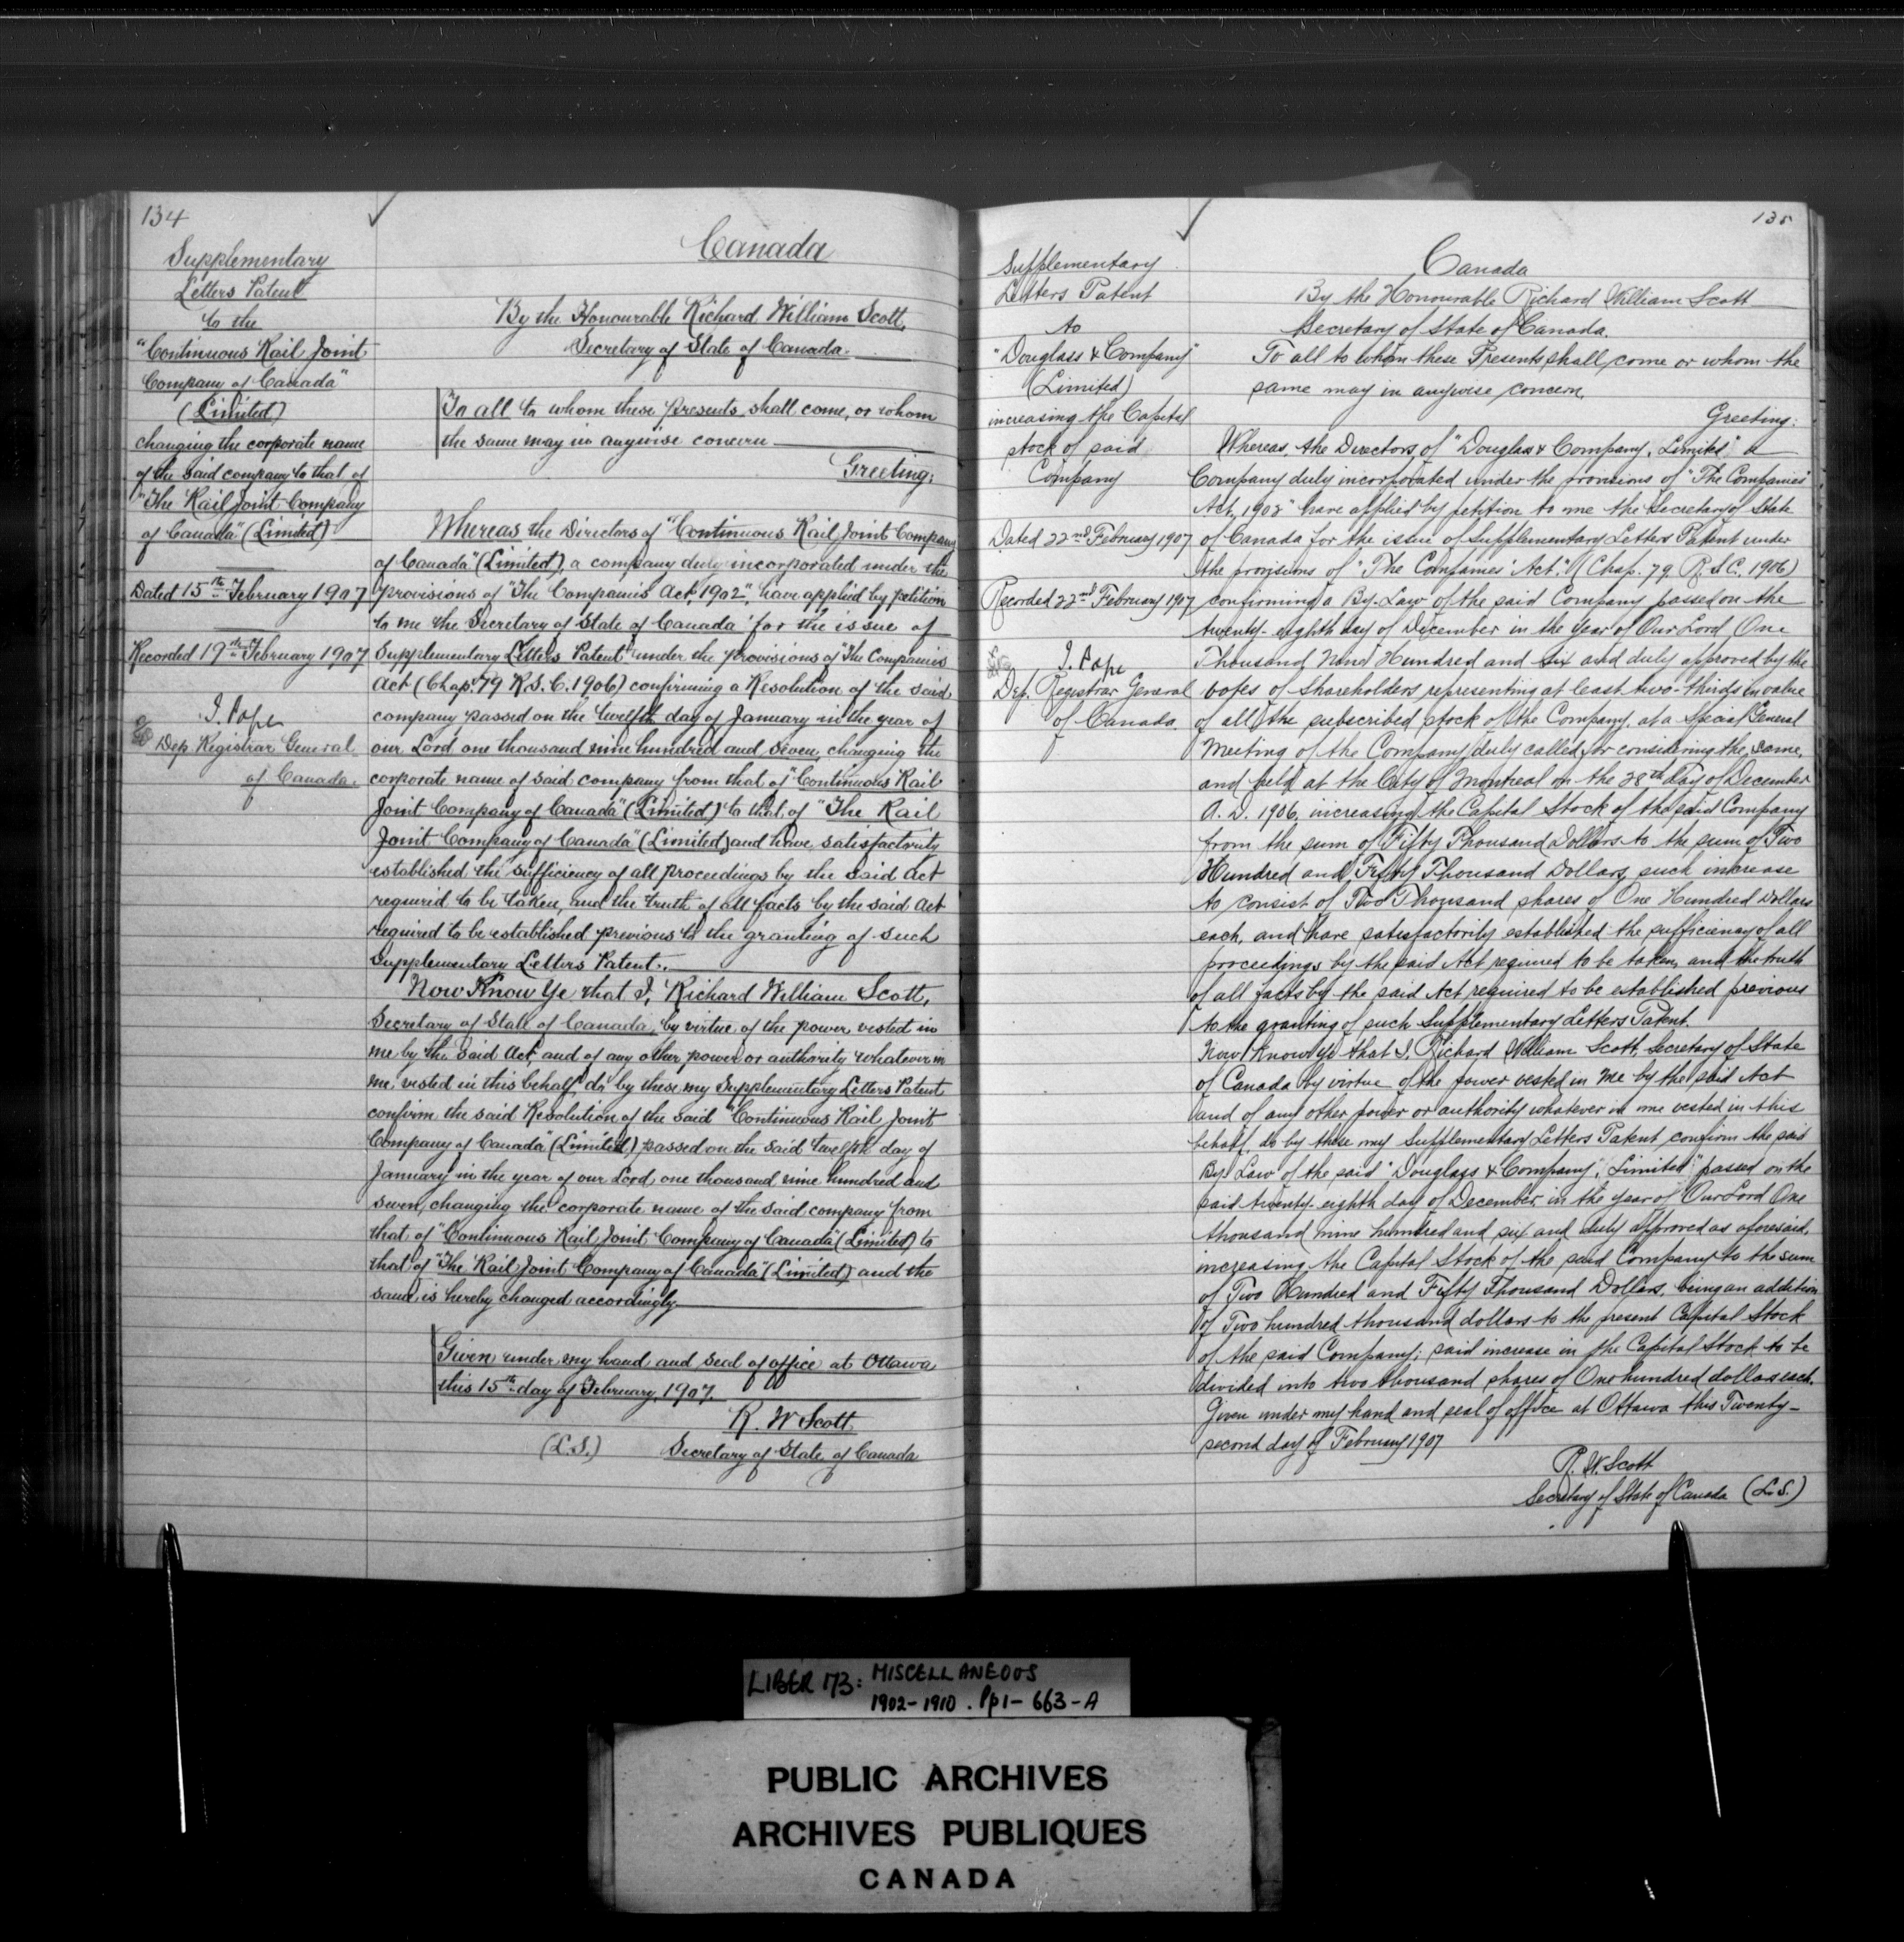 134
Supplementary
Letters Patent
to the
"Continuous Rail Joint
Company of Canada"
(Limited)
changing the corporate name
of the said company to that of
"The Rail Joint Company
of Canada" (Limited)
Dated 15th February 1907
Recorded 19th February 1907
J. Pope
Dep. Registrar General
of Canada.
Canada
By the Honourable Richard William Scott,
Secretary of State of Canada.
To all to whom these presents shall come, or whom
the same may in anywise concern
Greeting:
Whereas the Directors of "Continuous Rail Joint Company
of Canada" (Limited), a company duly incorporated under the
provisions of "The Companies Act, 1902", have applied by petition
to me the Secretary of State of Canada for the issue of
Supplementary Letters Patent under the provisions of "The Companies
Act (Chap. 79 R.S.C. 1906) confirming a Resolution of the said
company passed on the twelfth day of January in the year of
our Lord one thousand nine hundred and seven, changing the
corporate name of said company from that of "Continuous Rail
Joint Company of Canada" (Limited) to that of "The Rail
Joint Company of Canada" (Limited) and have satisfactorily
established the sufficiency of all proceedings by the said Act
required to be taken, and the truth of all facts by the said Act
required to be established previous to the granting of such
Supplementary Letters Patent.
Now Know Ye that I, Richard William Scott,
Secretary of State of Canada, by virtue of the power vested in
me by the said Act, and of any other power or authority whatever in
me vested in this behalf, do by these my Supplementary Letters Patent
confirm the said Resolution of the said "Continuous Rail Joint
Company of Canada" (Limited) passed on the said twelfth day of
January in the year of our Lord one thousand nine hundred and
seven, changing the corporate name of the said company from
that of "Continuous Rail Joint Company of Canada" (Limited) to
that of "The Rail Joint Company of Canada" (Limited) and the
same is hereby changed accordingly.
Given under my hand and seal of office at Ottawa
this 15th day of February, 1907.
R. W Scott
(L.S.) Secretary of State of Canada
135
Supplementary
Letters Patent
to
"Douglass & Company"
(Limited)
increasing the Capital
stock of said
Company
Dated 22nd February 1907
Recorded 22nd February 1907
J. Pope
Dep. Registrar General
of Canada.
Canada
By the Honourable Richard William Scott
Secretary of State of Canada.
To all to whom these Presents shall come or whom the
same may in anywise concern,
Greeting:
Whereas, the Directors of "Douglass & Company, Limited" a
Company duly incorporated under the provisions of "The Companies
Act, 1902" have applied by petition to me the Secretary of State
of Canada for the issue of Supplementary Letters Patent under
the provisions of "The Companies' Act." (Chap. 79 R.S.C. 1906)
confirming a By-Law of the said Company passed on the
twenty-eighth day of December in the year of Our Lord One
Thousand Nine Hundred and Six and duly approved by the
votes of shareholders representing at least two-thirds in value
of all the subscribed stock of the Company, at a Special General
Meeting of the Company duly called for considering the same,
and held at the City of Montreal on the 28th Day of December
A.D. 1906, increasing the Capital Stock of the said Company
from the sum of Fifty Thousand Dollars to the sum of Two
Hundred and Fifty Thousand Dollars, such increase
to consist of Two Thousand shares of One Hundred Dollars
each, and have satisfactorily established the sufficiency of all
proceedings by the said Act required to be taken, and the truth
of all facts by the said Act required to be established previous
to the granting of such Supplementary Letters Patent.
Now Know Ye that I, Richard William Scott, Secretary of State
of Canada by virtue of the power vested in me by the said Act
and of any other power or authority whatever in me vested in this
behalf, do by these my Supplementary Letters Patent confirm the said
By-Law of the said "Douglass & Company", Limited", passed on the
said twenty-eighth day of December in the year of Our Lord One
thousand nine hundred and six and duly approved as aforesaid,
increasing the Capital Stock of the said Company to the sum
of Two Hundred and Fifty Thousand Dollars, being an addition
of Two hundred thousand dollars to the present Capital Stock
of the said Company; said increase in the Capital Stock to be
divided into two thousand shares of One hundred dollars each.
Given under my hand and seal of office at Ottawa this Twenty-
second day of February 1907
R. W. Scott
Secretary of State of Canada (L.S.)
LIBER 173: MISCELLANEOUS
1902-1910. Pp 1-663-A
PUBLIC ARCHIVES
ARCHIVES PUBLIQUES
CANADA